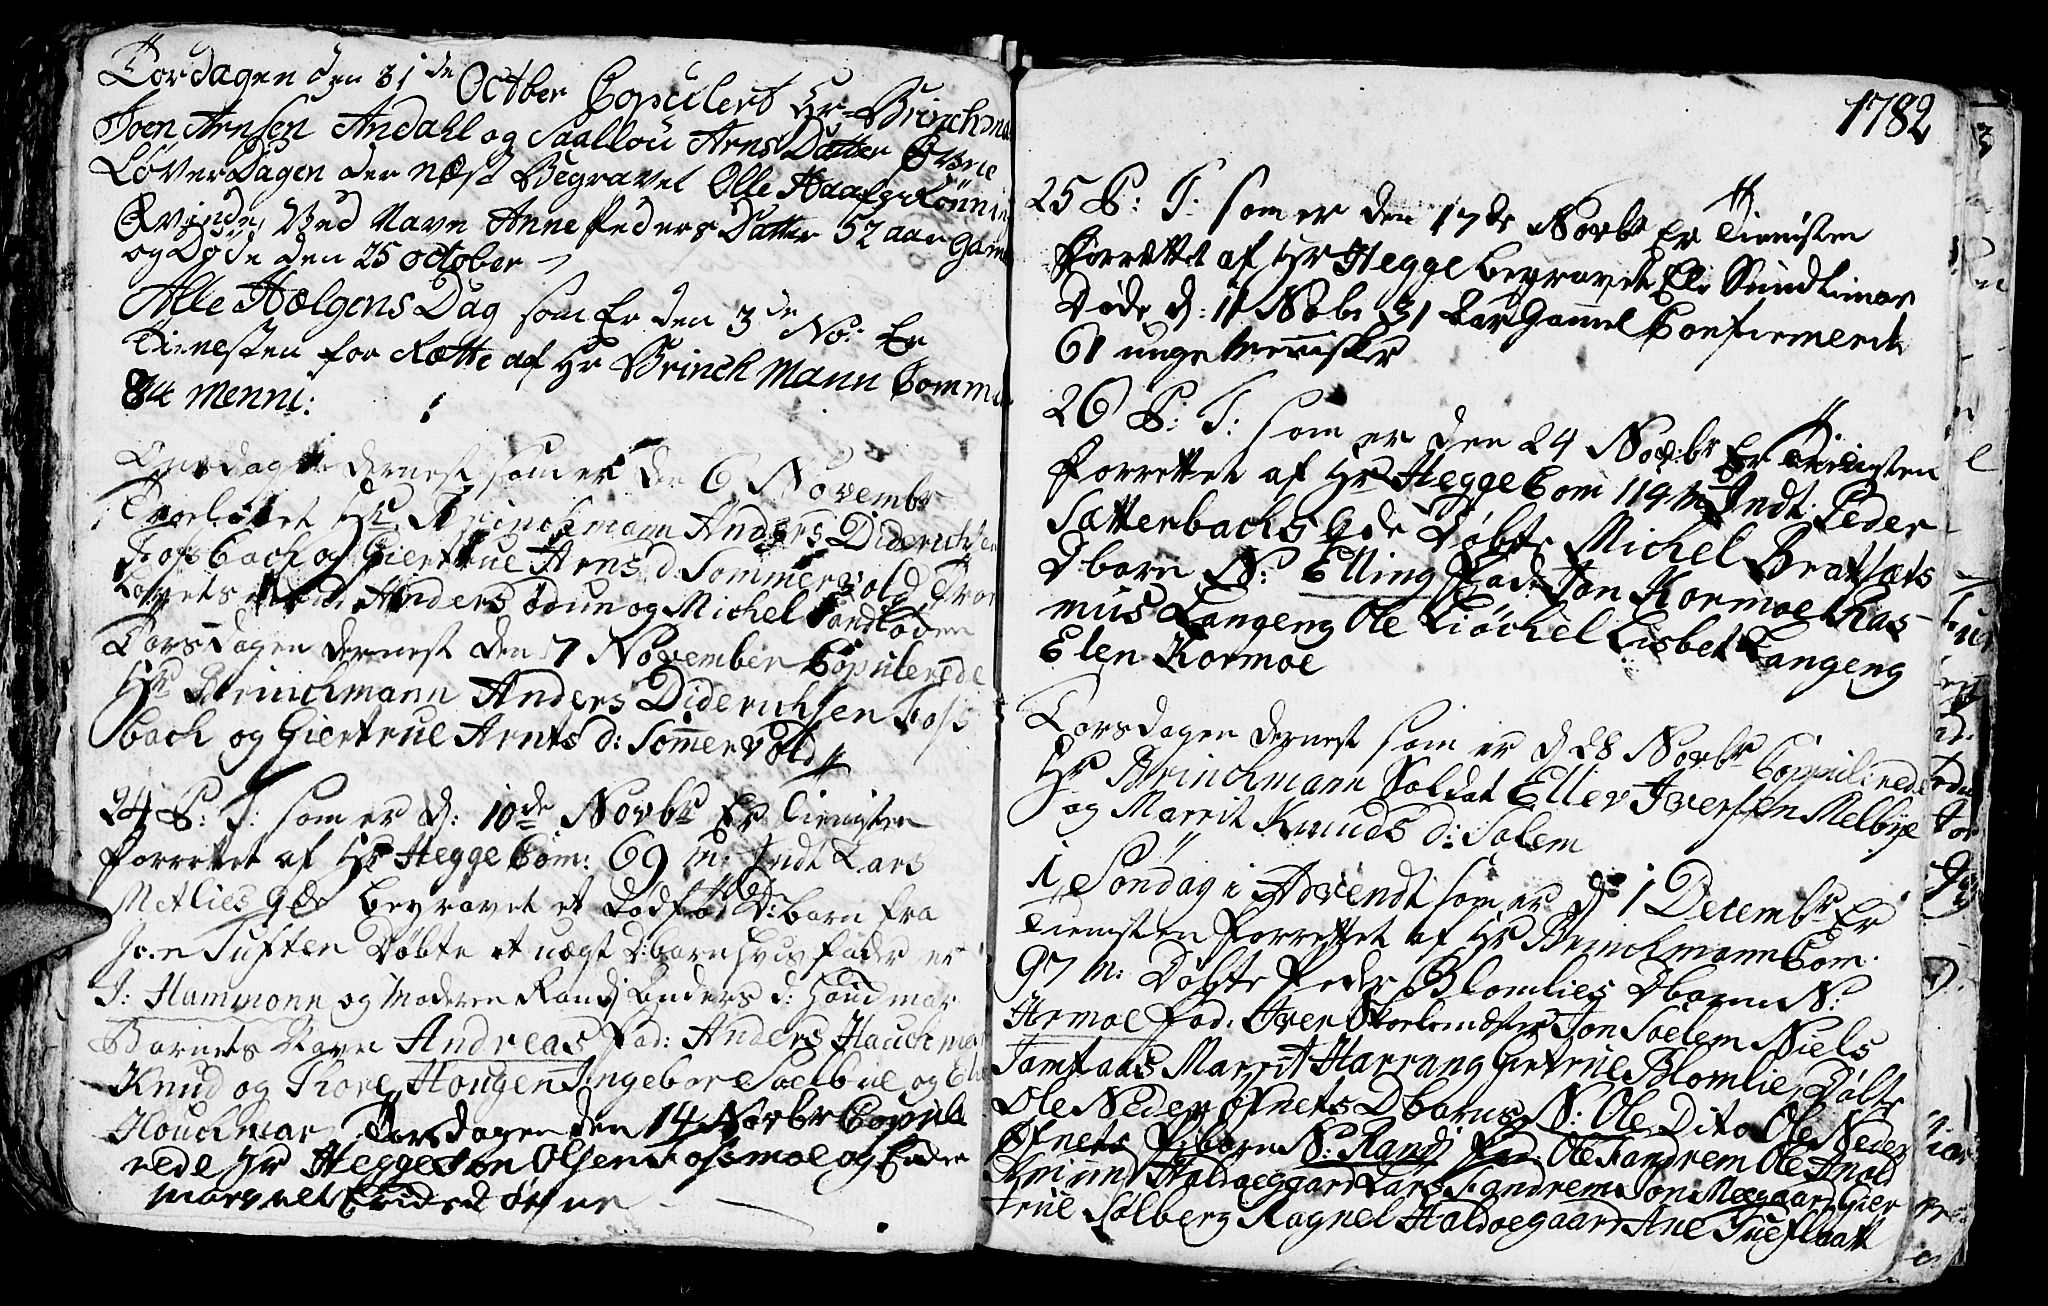 Torsdagen den 31de October Copulert Hr= Brinchman
Joen Arnsen Andahl og Saallou Arns Datter Øvrie
Løverdagen der næst Begravet Olle Haafs Rønnin
Qvinde, Ved Navn Anne Peders Datter 52 aar Gam
og Døde den 25 october
Alle Hælgens Dag som Er den 3de No: Er
Tienesten for Rætte af Hr Brinch Mann Comm
84 menni:
dernest som er de 6 Novembr
Troelovet Hr Brinchmann Anders Diderichsen
Fossbach og Giertrue Arns d: Sommervold
Anders Ødun og Michel Sandløden
Torsdagen dernest den 7 November Copulerede
Hr Brinchmann Anders Diderichsen Foss
bach og Giertrue Arnts d: Somervold
24 P: T: som er d: 10de Novbr Er Tienisten
forrettet af Hr Hegge Com: 69 m: Indt Lars
Metlies qde begravet et Dødfød D:barn fra
Tuften Døbte et uægt D:barn hvis fader er
J: Hammonn og Moderen Randj Anders d: Houdmar
Barnets Navn Andreas fad: Anders Hauchmar
Knud og Thore Hougen Ingebor Soelbue og
Houchmar Torsdagen den 14 Novbr Copule
rede Hr Hegge Jon Olsen Fossmoe og Enken
margret Erichsd
1782
25 P: T: som er den 17de Novbr Er Tienisten
Forrettet af Hr Hegge begravet Ele Sundlimar
Døde d: 11 Nobr 31 Aar Gamel Confirmerit
61 unge Mennisker
26 P: T: som er den 24 Novbr Er Tienigsten
forrettet af Hr Hegge Com 119 m Indt: Peder
Satterbachs qde Døbte Michel Bratsæts
Dbarn N: Elling Fad: Jon Kormoe Ras-
mus Langeng Ole Kiöchel Lisbet Langeng
Elen Kormoe
Torsdagen dernest som er d 28 Novbr Copulerede
Hr Brinchmann Soldat Eller Iversen Melbye
og Marrit Knuds d: Solem
1 Søndag i Advendt som er d: 1 Decembr Er
Tienisten forrettet af Hr Brinchmann Com.
97 m: Døbte Peder Blomlies Dbarn N:
Armoe fad: Iver Jon Soelem Niels
Tamtaas Marrit Harrang Giertrue Blomlie, Døbte
Ole Neder Øfnets Dbarns N: Ole Dito Ole Neder
Øfnets Pibarn N: Randj Fad: Ole Fandrem Ole Anol
Haldoegaard Lars Fandrem Jon Meegaard Gier
true Solberg Ragnel Haldoegaard Ane Tueflaatt